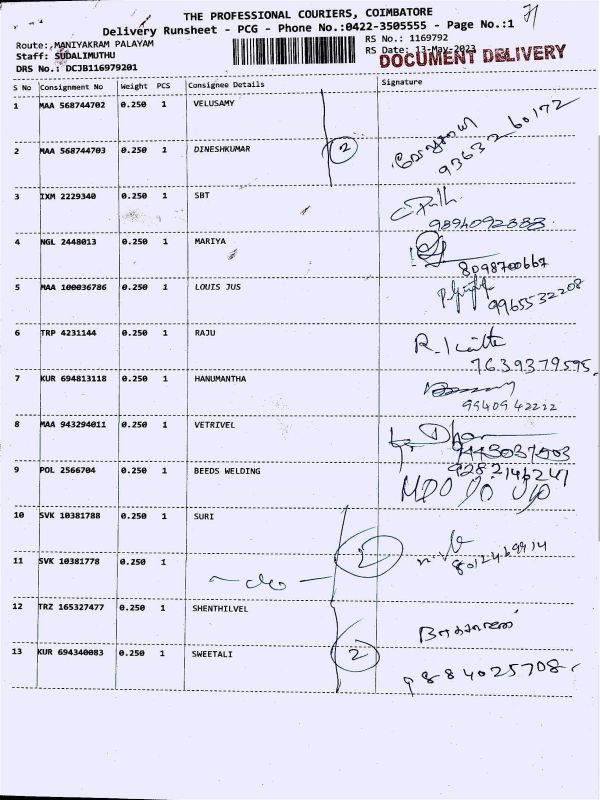 THE PROFESSIONAL COURIERS, COIMBATORE
Delivery Runsheet - PCG - Phone No.:0422-3505555 - Page No.:1
Route: MANIYAKRAM PALAYAM
RS No.: 1169792
Staff: SUDALIMUTHU
RS Date: 13-May-2023
DRS No.: DCJB116979201
DOCUMENT DELIVERY
S No Consignment No Weight PCS Consignee Details Signature
1 MAA 568744702 0.250 1 VELUSAMY
2 MAA 568744703 0.250 1 DINESHKUMAR 2
93632 60172
3 IXM 2229340 0.250 1 SBT
9894092888
4 NGL 2448013 0.250 1 MARIYA
8098700667
5 MAA 100036786 0.250 1 LOUIS JUS
9965532208
6 TRP 4231144 0.250 1 RAJU
7639379595
7 KUR 694813118 0.250 1 HANUMANTHA
99409 42222
8 MAA 943294011 0.250 1 VETRIVEL
9 POL 2566704 0.250 1 BEEDS WELDING
10 SVK 10381788 0.250 1 SURI
11 SVK 10381778 0.250 1 do 2
12 TRZ 165327477 0.250 1 SHENTHILVEL
13 KUR 694340083 0.250 1 SWEETALI 2
9884025708